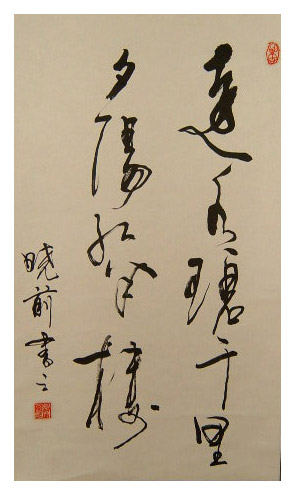 遠水碧千里
夕陽紅半樓
晓前書之